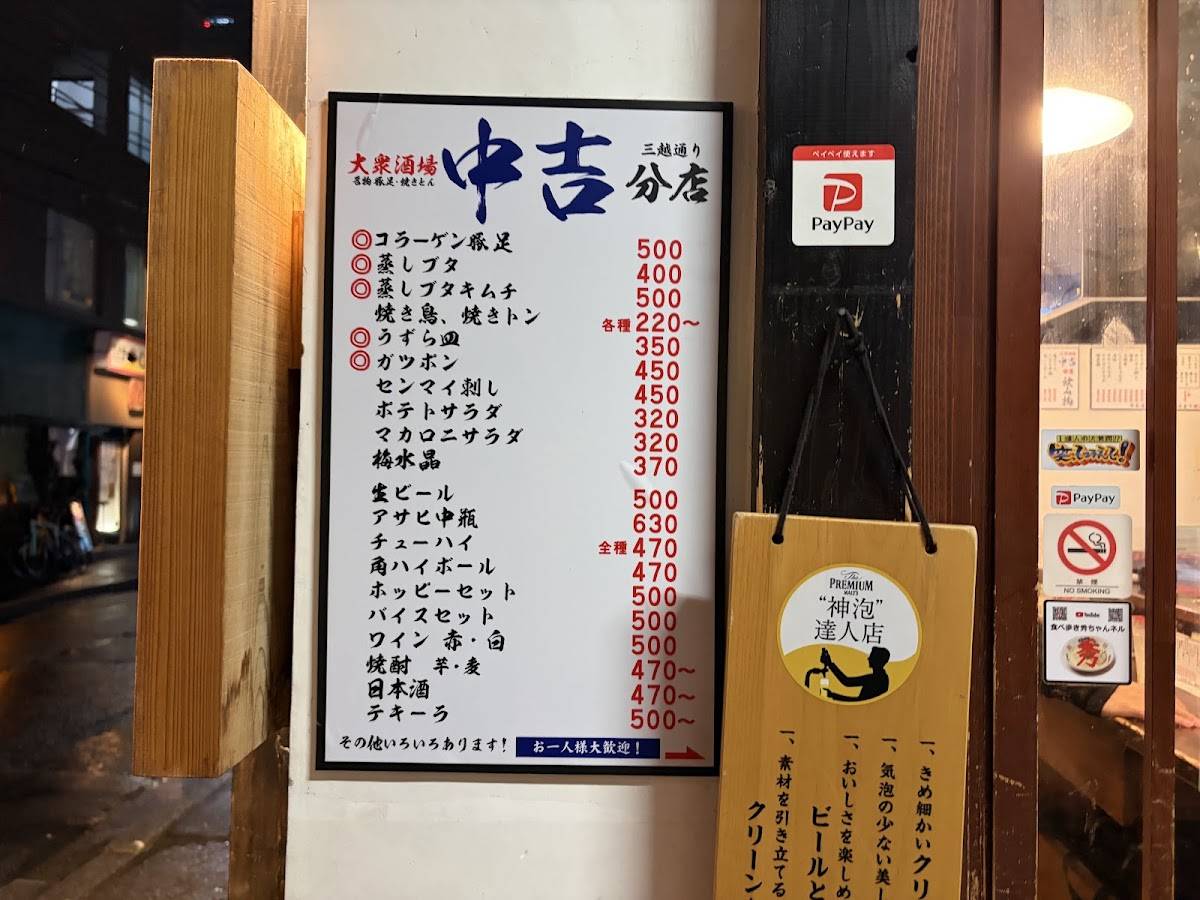 大衆酒場
名物 豚足・焼きとん
中吉
三越通り
分店
◎コラーゲン豚足 500
◎蒸しブタ 400
◎蒸しブタキムチ 500
焼き鳥、焼きトン 各種220～
◎うずら皿 350
◎ガツポン 450
センマイ刺し 450
ポテトサラダ 320
マカロニサラダ 320
梅水晶 370
生ビール 500
アサヒ中瓶 630
チューハイ 全種470
角ハイボール 470
ホッピーセット 500
バイスセット 500
ワイン 赤・白 500
焼酎 芋・麦 470～
日本酒 470～
テキーラ 500～
その他いろいろあります！
お一人様大歓迎！
ペイペイ使えます
PayPay
The PREMIUM MALT'S
“神泡”
達人店
一、きめ細かいクリ
一、気泡の少ない美し
一、おいしさを楽しめ
ビールと
一、素材を引き立てる
クリーン
中吉
飲み物
PayPay
禁煙
NO SMOKING
YouTube
食べ歩き秀ちゃんネル
秀